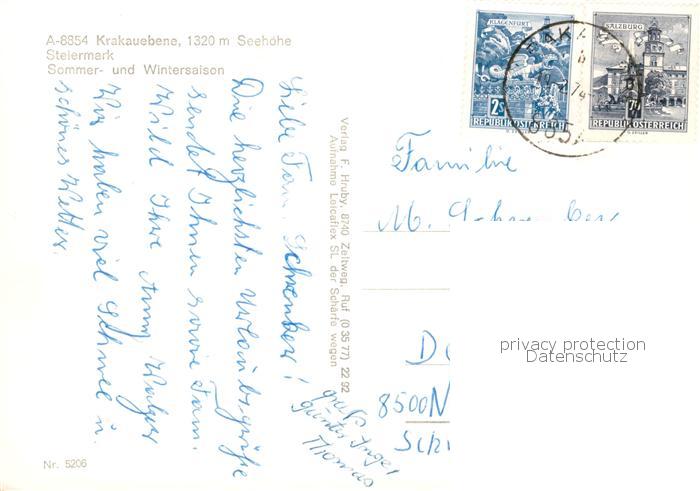 A-8854 Krakauebene, 1320 m Seehöhe
Steiermark
Sommer- und Wintersaison
Liebe Fam. Schrenker!
Die herzlichsten Urlaubsgrüße
sendet Ihnen sowie Fam.
Wild Ihre Anny
Wir haben viel Schnee u.
schönes Wetter.
Gruß
Günter Inge!
Thomas
Verlag F. Hruby, 8740 Zeltweg, Ruf (0 35 77) 22 92
Aufnahme Leicaflex SL der Schärfe wegen
KLAGENFURT
2S
REPUBLIK ÖSTERREICH
SALZBURG
REPUBLIK ÖSTERREICH
Familie
M.
8500 N
privacy protection
Datenschutz
Nr. 5206